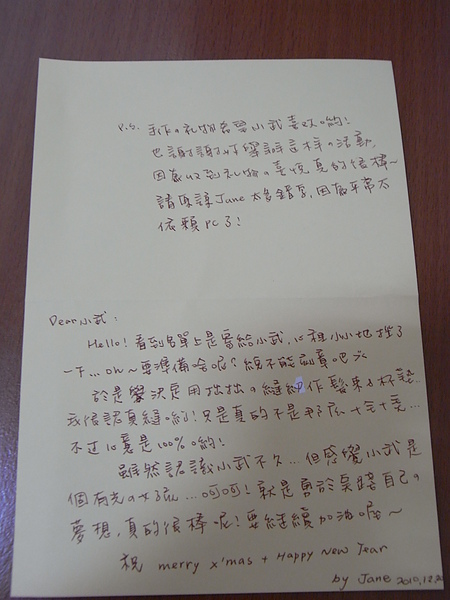 P.S. 手作の礼物希望小武喜欢哟!
也謝謝好學辦這样の活動,
因為收到礼物の喜悅真的很棒~
請原諒Jane太多錯字,因為平常太
依賴PC了!
Dear小武:
Hello! 看到名單上是寄給小武,心裡小小地挫了
一下...oh~要準備啥呢?總不能刻章吧
於是變決定用拙拙の縫紉作髮束&杯墊..
我很認真縫的!只是真的不是那麼十全十美...
不过心意是100%喲!
雖然認識小武不久...但感覺小武是
個有光の女孩...呵呵!就是勇於實踐自己の
夢想,真的很棒呢!要繼續加油喔~
祝 merry x'mas + Happy New Year
by Jane 2010.12.20